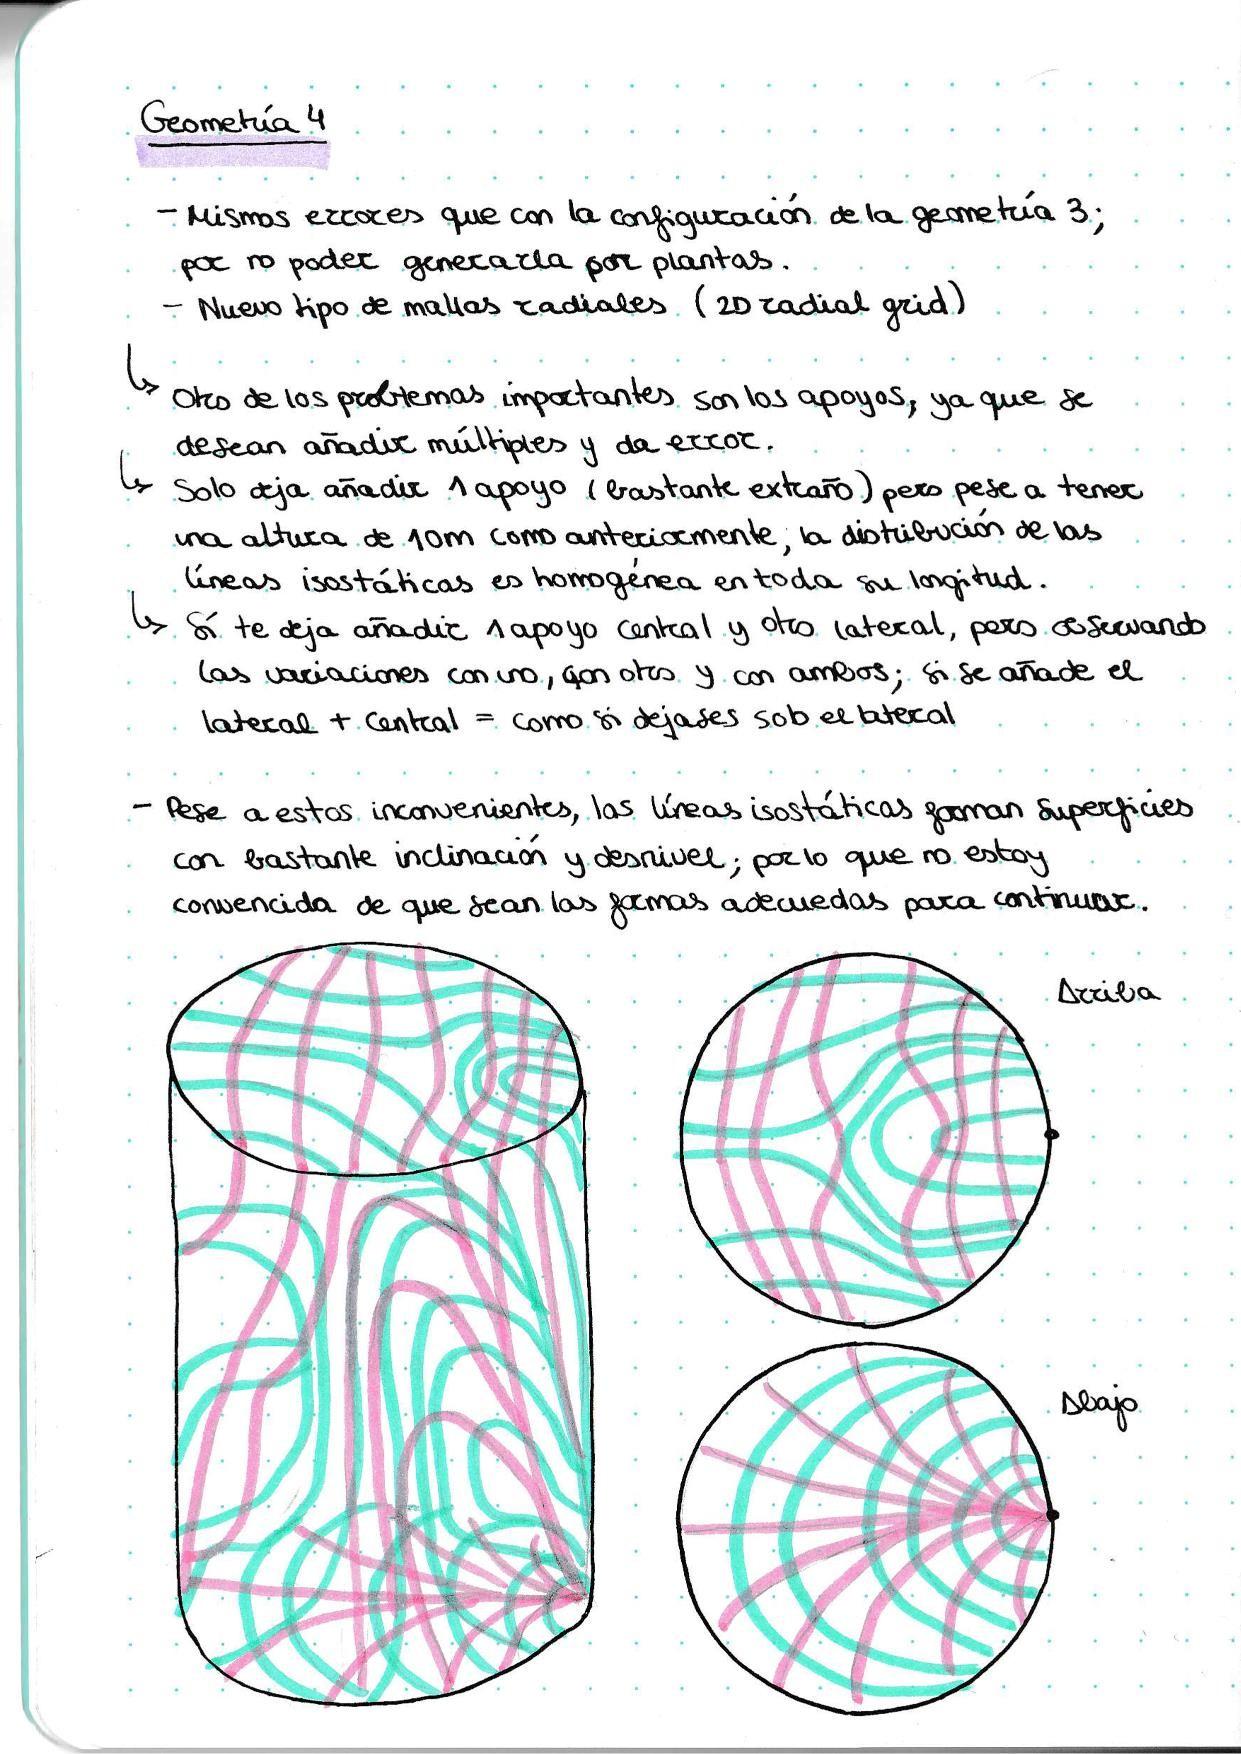 Geometría 4
- Mismos errores que con la configuración de la geometría 3;
por no poder generarla por plantas.
- Nuevo tipo de mallas radiales (2D radial grid)
↳ Otro de los problemas importantes son los apoyos, ya que se
desean añadir múltiples y da error.
↳ Solo deja añadir 1 apoyo (bastante extraño) pero pese a tener
una altura de 10m como anteriormente, la distribución de las
líneas isostáticas es homogénea en toda su longitud.
↳ Sí te deja añadir 1 apoyo central y otro lateral, pero observando
las variaciones con uno, con otro y con ambos; si se añade el
lateral + central = como si dejases solo el lateral
- Pese a estos inconvenientes, las líneas isostáticas forman superficies
con bastante inclinación y desnivel; por lo que no estoy
convencida de que sean las formas adecuadas para continuar.
Arriba
Abajo